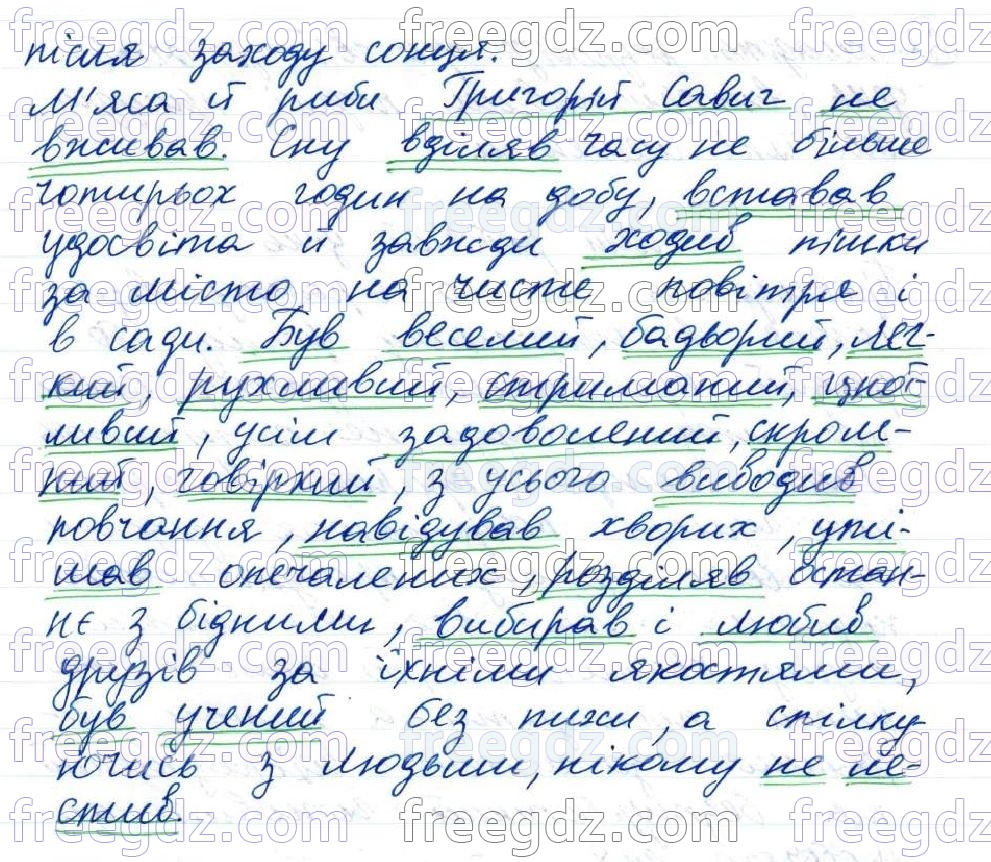 після заходу сонця.
М'яса й риби Григорій Савич не
вживав. Сну вділяв часу не більше
чотирьох годин на добу, вставав
удосвіта й завжди ходив пішки
за місто на чисте повітря і
в сади. Був веселий, бадьорий, лег-
кий, рухливий, стриманий, цнот-
ливий, усім задоволений, скром-
ний, говіркий, з усього виводив
повчання, навідував хворих, уті-
шав опечалених, розділяв остан-
нє з бідними, вибирав і любив
друзів за їхніми якостями,
був учений без пихи, а спілку-
ючись з людьми, нікому не ле-
стив.